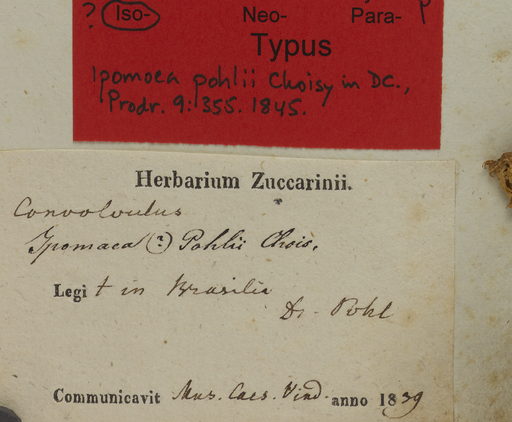 ? Iso- Neo- Para-
Typus
Ipomoea pohlii Choisy in DC.,
Prodr. 9: 355. 1845.
Herbarium Zuccarinii.
Convolvulus
Ipomaea (?) Pohlii Chois.
Legit in Brasilia
Dr. Pohl
Communicavit Mus. Caes. Vind. anno 1839